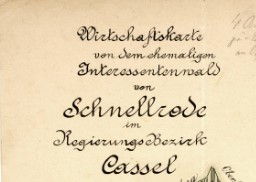 Wirtschaftskarte
von dem ehemaligen
Interessentenwald
von
Schnellrode
im
Regierungs Bezirk
Cassel